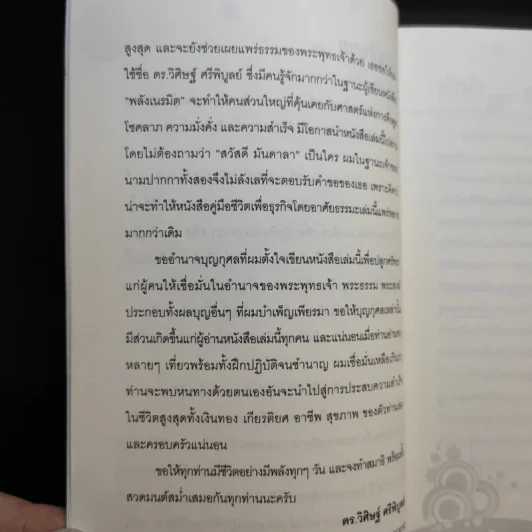 สูงสุด และจะยังช่วยเผยแพร่ธรรมของพระพุทธเจ้าด้วย เธอขอให้ผม
ใช้ชื่อ ดร.วิศิษฐ์ ศรีพิบูลย์ ซึ่งมีคนรู้จักมากกว่าในฐานะผู้เขียนหนังสือ
“พลังเนรมิต” จะทำให้คนส่วนใหญ่ที่คุ้นเคยกับศาสตร์แห่งการดึงดูด
โชคลาภ ความมั่งคั่ง และความสำเร็จ มีโอกาสนำหนังสือเล่มนี้ไป
โดยไม่ต้องถามว่า “สวัสดี มันดาลา” เป็นใคร ผมในฐานะเจ้าของ
นามปากกาทั้งสองจึงไม่ลังเลที่จะตอบรับคำขอของเธอ เพราะคิดว่า
น่าจะทำให้หนังสือคู่มือชีวิตเพื่อธุรกิจโดยอาศัยธรรมะเล่มนี้แพร่หลาย
มากกว่าเดิม
ขออำนาจบุญกุศลที่ผมตั้งใจเขียนหนังสือเล่มนี้เพื่อปลูกศรัทธา
แก่ผู้คนให้เชื่อมั่นในอำนาจของพระพุทธเจ้า พระธรรม พระสงฆ์
ประกอบทั้งผลบุญอื่นๆ ที่ผมบำเพ็ญเพียรมา ขอให้บุญกุศลเหล่านั้น
มีส่วนเกิดขึ้นแก่ผู้อ่านหนังสือเล่มนี้ทุกคน และแน่นอนเมื่อท่านอ่าน
หลายๆ เที่ยวพร้อมทั้งฝึกปฏิบัติจนชำนาญ ผมเชื่อมั่นเหลือเกินว่า
ท่านจะพบหนทางด้วยตนเองอันจะนำไปสู่การประสบความสำเร็จ
ในชีวิตสูงสุดทั้งเงินทอง เกียรติยศ อาชีพ สุขภาพ ของตัวท่านเอง
และครอบครัวแน่นอน
ขอให้ทุกท่านมีชีวิตอย่างมีพลังทุกๆ วัน และจงทำสมาธิ พร้อมทั้ง
สวดมนต์สม่ำเสมอกันทุกท่านนะครับ
ดร.วิศิษฐ์ ศรีพิบูลย์